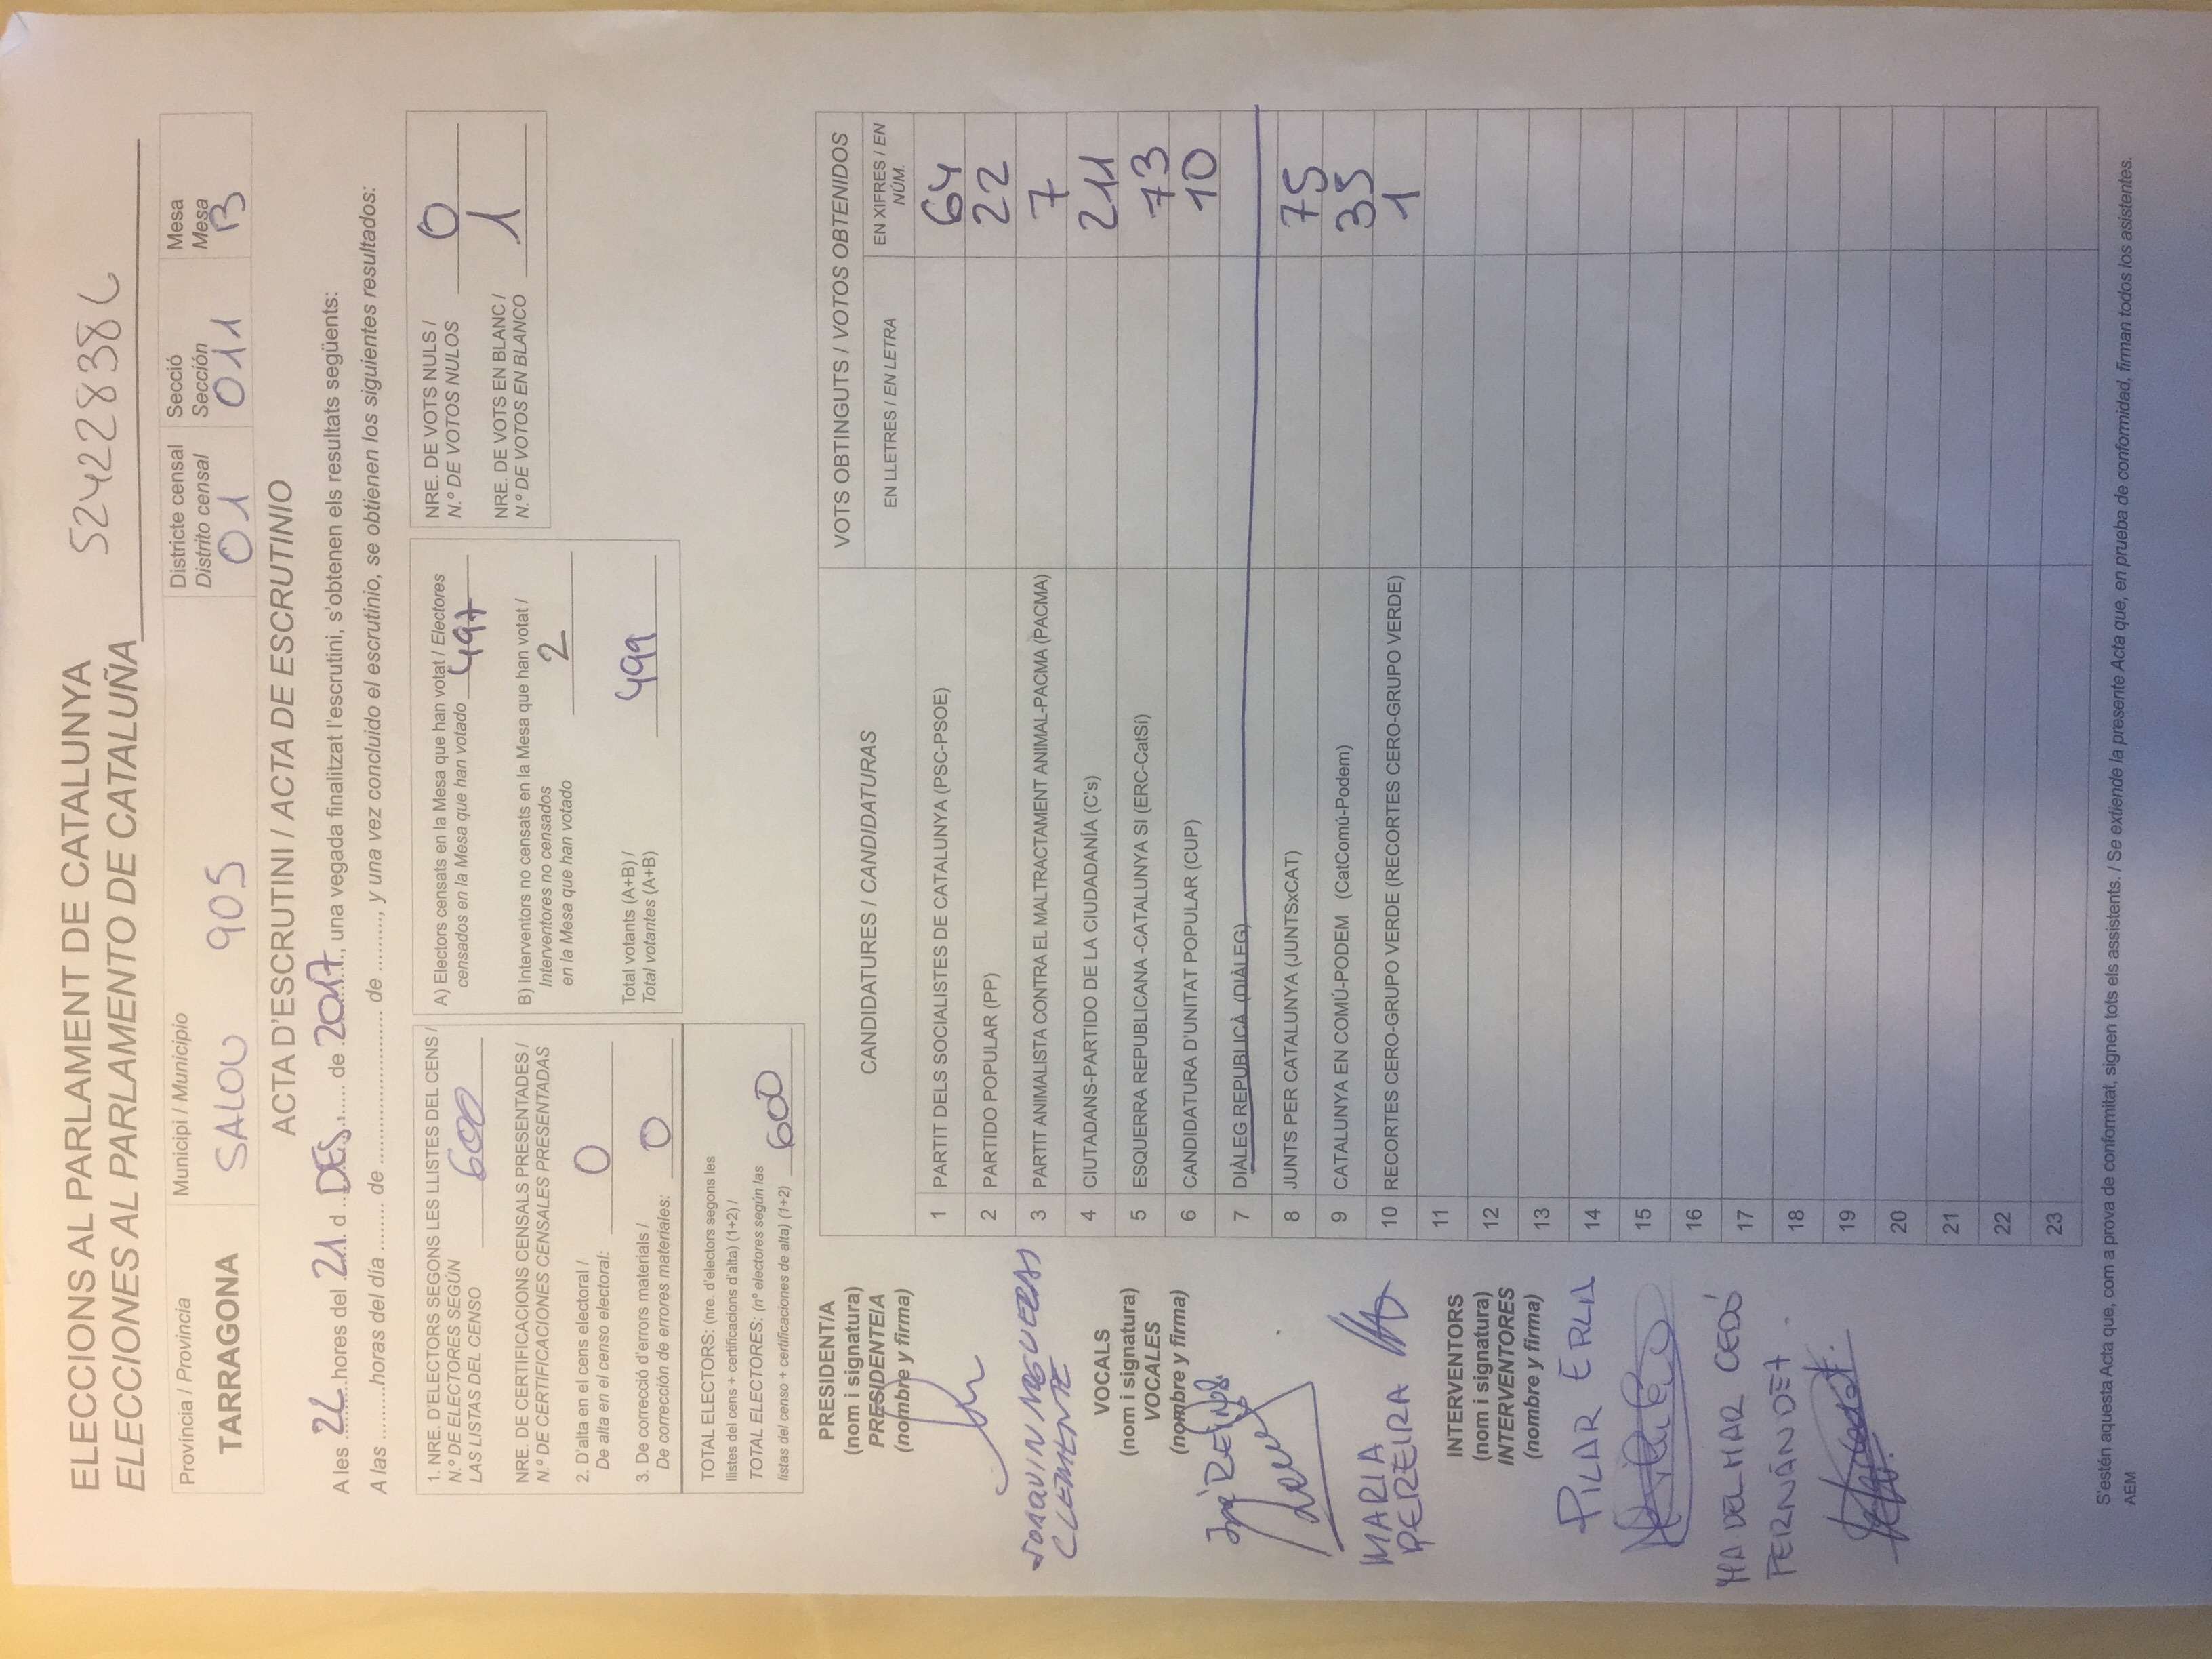 ELECCIONS AL PARLAMENT DE CATALUNYA
ELECCIONES AL PARLAMENTO DE CATALUÑA
Província / Provincia
TARRAGONA
Municipi / Municipio
SALOU 905
Districte censal
Distrito censal
01
Secció
Sección
011
Mesa
Mesa
B
ACTA D'ESCRUTINI / ACTA DE ESCRUTINIO
A les 22 hores del 21 d DES. de 2017, una vegada finalitzat l'escrutini, s'obtenen els resultats següents:
A las .........horas del día ........ de .......................... de ........., y una vez concluido el escrutinio, se obtienen los siguientes resultados:
1. NRE. D'ELECTORS SEGONS LES LLISTES DEL CENS /
N.º DE ELECTORES SEGÚN
LAS LISTAS DEL CENSO 600
NRE. DE CERTIFICACIONS CENSALS PRESENTADES /
N.º DE CERTIFICACIONES CENSALES PRESENTADAS
2. D'alta en el cens electoral /
De alta en el censo electoral: 0
3. De correcció d'errors materials /
De corrección de errores materiales: 0
TOTAL ELECTORS: (nre. d'electors segons les
llistes del cens + certificacions d'alta) (1+2) /
TOTAL ELECTORES: (nº electores según las
listas del censo + certificaciones de alta) (1+2) 600
A) Electors censats en la Mesa que han votat / Electores
censados en la Mesa que han votado 497
B) Interventors no censats en la Mesa que han votat /
Interventores no censados
en la Mesa que han votado 2
Total votants (A+B) /
Total votantes (A+B) 499
NRE. DE VOTS NULS /
N.º DE VOTOS NULOS 0
NRE. DE VOTS EN BLANC /
N.º DE VOTOS EN BLANCO 1
PRESIDENT/A
(nom i signatura)
PRESIDENTE/A
(nombre y firma)
JOAQUIN NOGUERAS
CLEMENTE
VOCALS
(nom i signatura)
VOCALES
(nombre y firma)
MARIA
PEREIRA
INTERVENTORS
(nom i signatura)
INTERVENTORES
(nombre y firma)
PILAR ERLA
Mª DEL MAR CEDÓ
FERNÁNDEZ
CANDIDATURES / CANDIDATURAS
VOTS OBTINGUTS / VOTOS OBTENIDOS
EN LLETRES / EN LETRA
EN XIFRES / EN
NÚM.
1 PARTIT DELS SOCIALISTES DE CATALUNYA (PSC-PSOE) 64
2 PARTIDO POPULAR (PP) 22
3 PARTIT ANIMALISTA CONTRA EL MALTRACTAMENT ANIMAL-PACMA (PACMA) 7
4 CIUTADANS-PARTIDO DE LA CIUDADANÍA (C's) 211
5 ESQUERRA REPUBLICANA -CATALUNYA SI (ERC-CatSí) 73
6 CANDIDATURA D'UNITAT POPULAR (CUP) 10
7 DIÀLEG REPUBLICÀ (DIÀLEG)
8 JUNTS PER CATALUNYA (JUNTSxCAT) 75
9 CATALUNYA EN COMÚ-PODEM (CatComú-Podem) 35
10 RECORTES CERO-GRUPO VERDE (RECORTES CERO-GRUPO VERDE) 1
11
12
13
14
15
16
17
18
19
20
21
22
23
S'estén aquesta Acta que, com a prova de conformitat, signen tots els assistents. / Se extiende la presente Acta que, en prueba de conformidad, firman todos los asistentes.
AEM